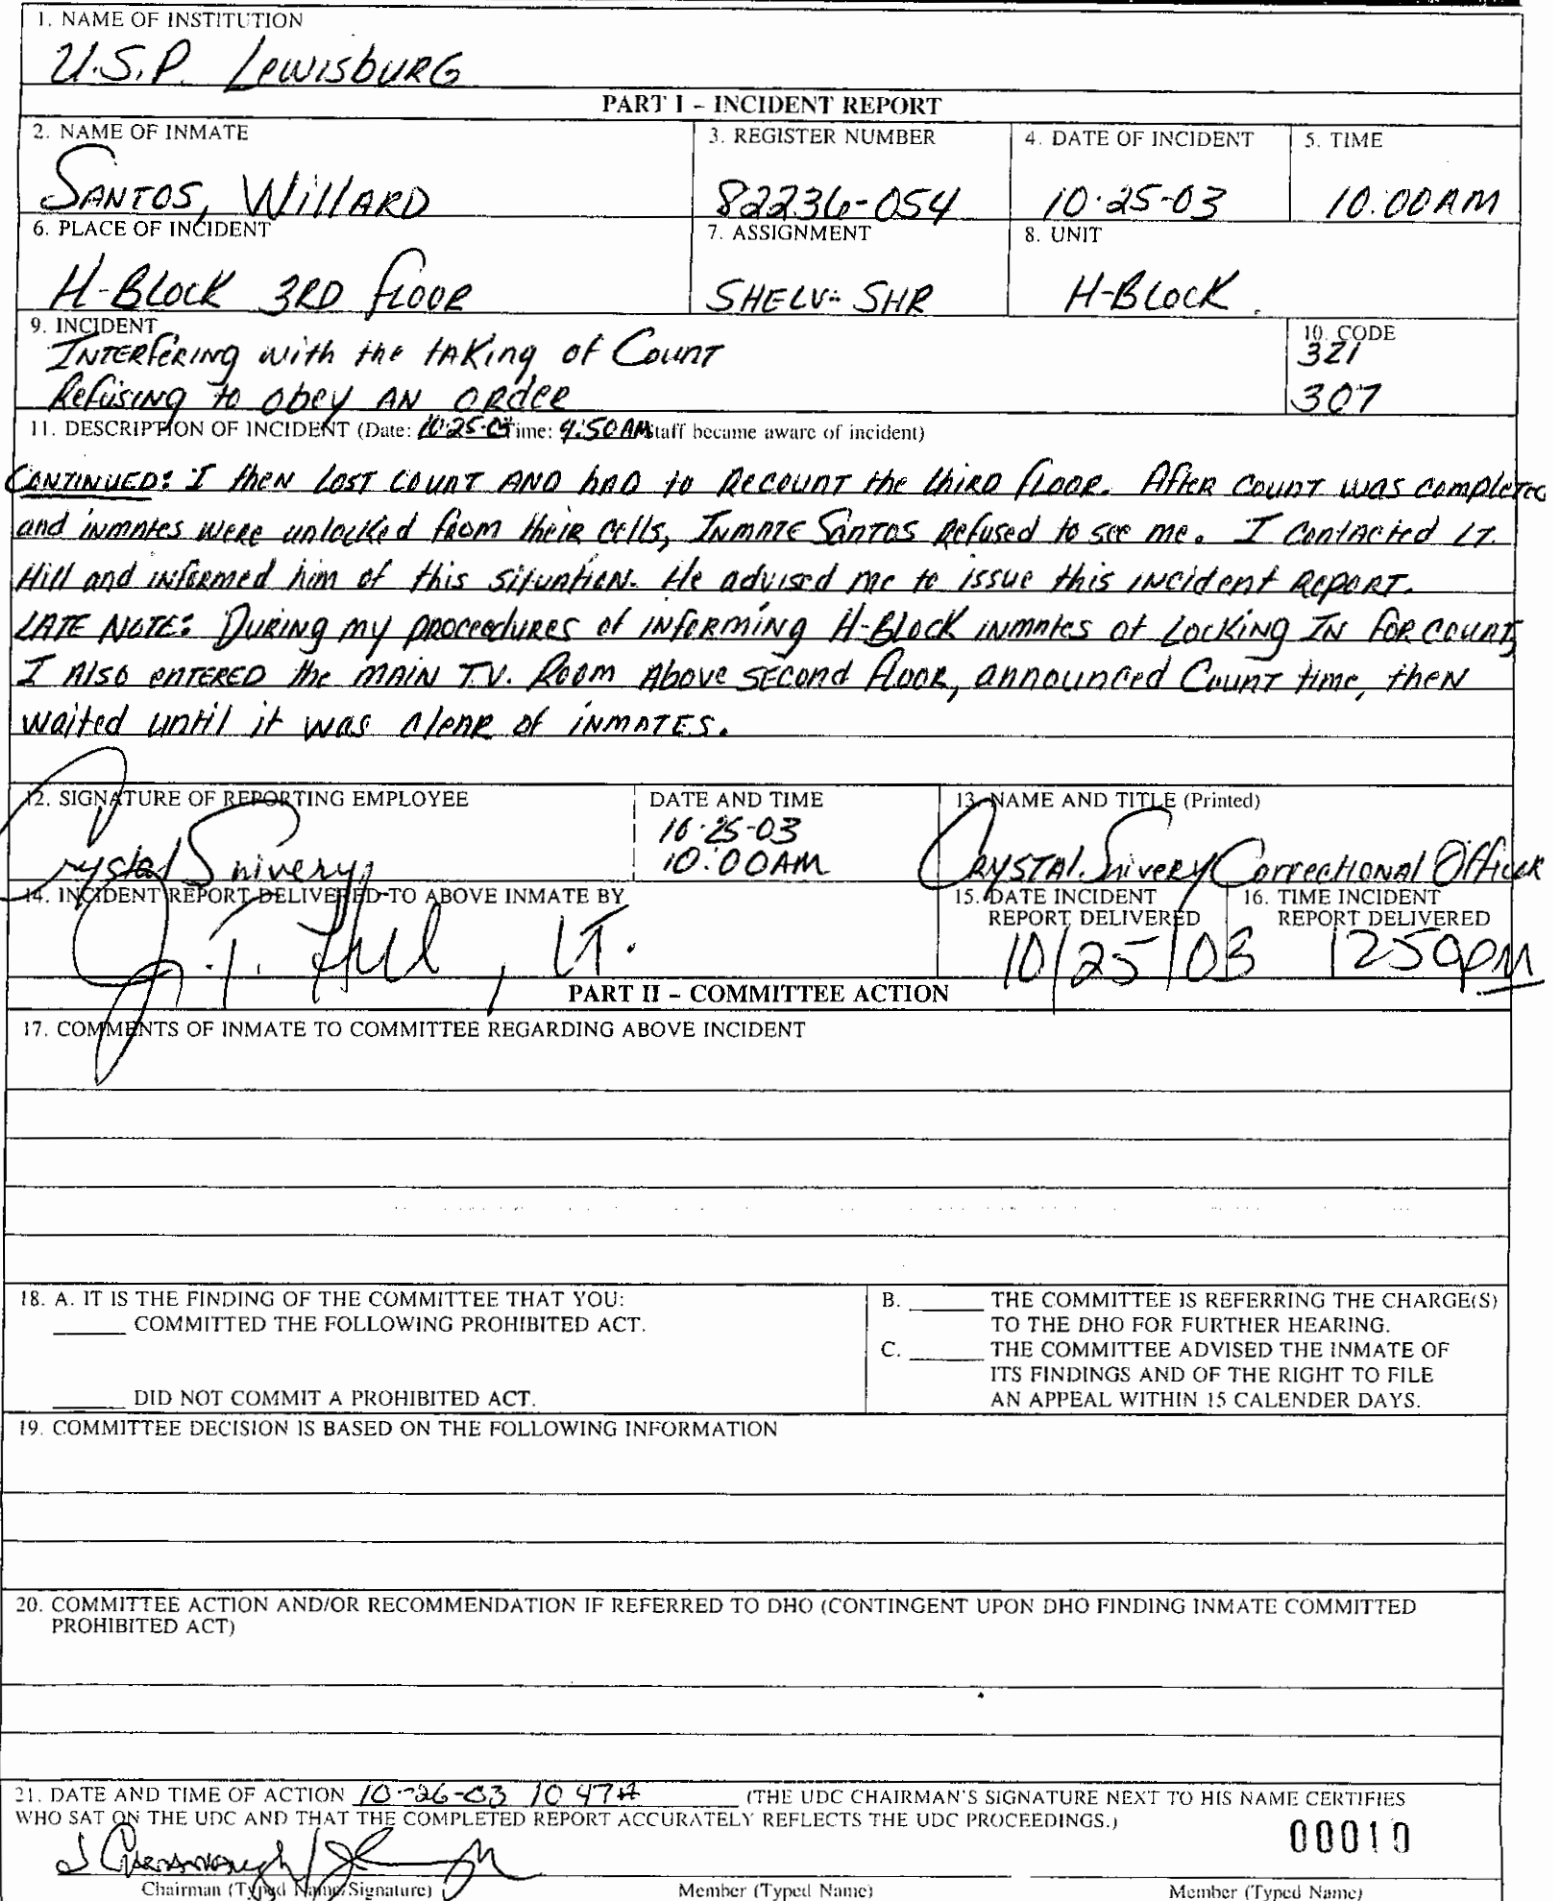 1. NAME OF INSTITUTION
U.S.P. LEWISBURG
PART I – INCIDENT REPORT
2. NAME OF INMATE
3. REGISTER NUMBER
4. DATE OF INCIDENT
5. TIME
SANTOS, WillARD
82236-054
10-25-03
10:00AM
6. PLACE OF INCIDENT
7. ASSIGNMENT
8. UNIT
H-BLOCK 3RD flOOR
SHELV- SHR
H-BLOCK.
9. INCIDENT
10. CODE
INTERfERING with the tAKing of COUNT
321
Refusing to obey AN ORdeR
307
11. DESCRIPTION OF INCIDENT (Date: 10-25-03 Time: 9:50AM staff became aware of incident)
CONTINUED: I then LOST COUNT AND hAD to RECOUNT the thiRD flOOR. AfteR COUNT was completed
and inmates were unlocked from their cells, INMATE SANTOS Refused to see me. I contacted LT.
Hill and informed him of this situation. He advised me to issue this incident REPORT.
LATE NOTE: DURING my procedures of informing H-Block inmates of Locking IN for COUNT,
I Also entered the MAIN T.V. Room Above SECOND flOOR, announced COUNT time, then
waited until it was cleaR of INMATES.
12. SIGNATURE OF REPORTING EMPLOYEE
DATE AND TIME
13. NAME AND TITLE (Printed)
10-25-03
Crystal Snivery
10:00AM
CRYSTAL Snivery Correctional Officer
14. INCIDENT REPORT DELIVERED TO ABOVE INMATE BY
15. DATE INCIDENT REPORT DELIVERED
16. TIME INCIDENT REPORT DELIVERED
J.T. Hill, LT.
10/25/03
1250pm
PART II – COMMITTEE ACTION
17. COMMENTS OF INMATE TO COMMITTEE REGARDING ABOVE INCIDENT
18. A. IT IS THE FINDING OF THE COMMITTEE THAT YOU:
COMMITTED THE FOLLOWING PROHIBITED ACT.
DID NOT COMMIT A PROHIBITED ACT.
B. THE COMMITTEE IS REFERRING THE CHARGE(S)
TO THE DHO FOR FURTHER HEARING.
C. THE COMMITTEE ADVISED THE INMATE OF
ITS FINDINGS AND OF THE RIGHT TO FILE
AN APPEAL WITHIN 15 CALENDER DAYS.
19. COMMITTEE DECISION IS BASED ON THE FOLLOWING INFORMATION
20. COMMITTEE ACTION AND/OR RECOMMENDATION IF REFERRED TO DHO (CONTINGENT UPON DHO FINDING INMATE COMMITTED
PROHIBITED ACT)
21. DATE AND TIME OF ACTION 10-26-03 10 47A (THE UDC CHAIRMAN'S SIGNATURE NEXT TO HIS NAME CERTIFIES
WHO SAT ON THE UDC AND THAT THE COMPLETED REPORT ACCURATELY REFLECTS THE UDC PROCEEDINGS.)
00010
Chairman (Typed Name/Signature)
Member (Typed Name)
Member (Typed Name)